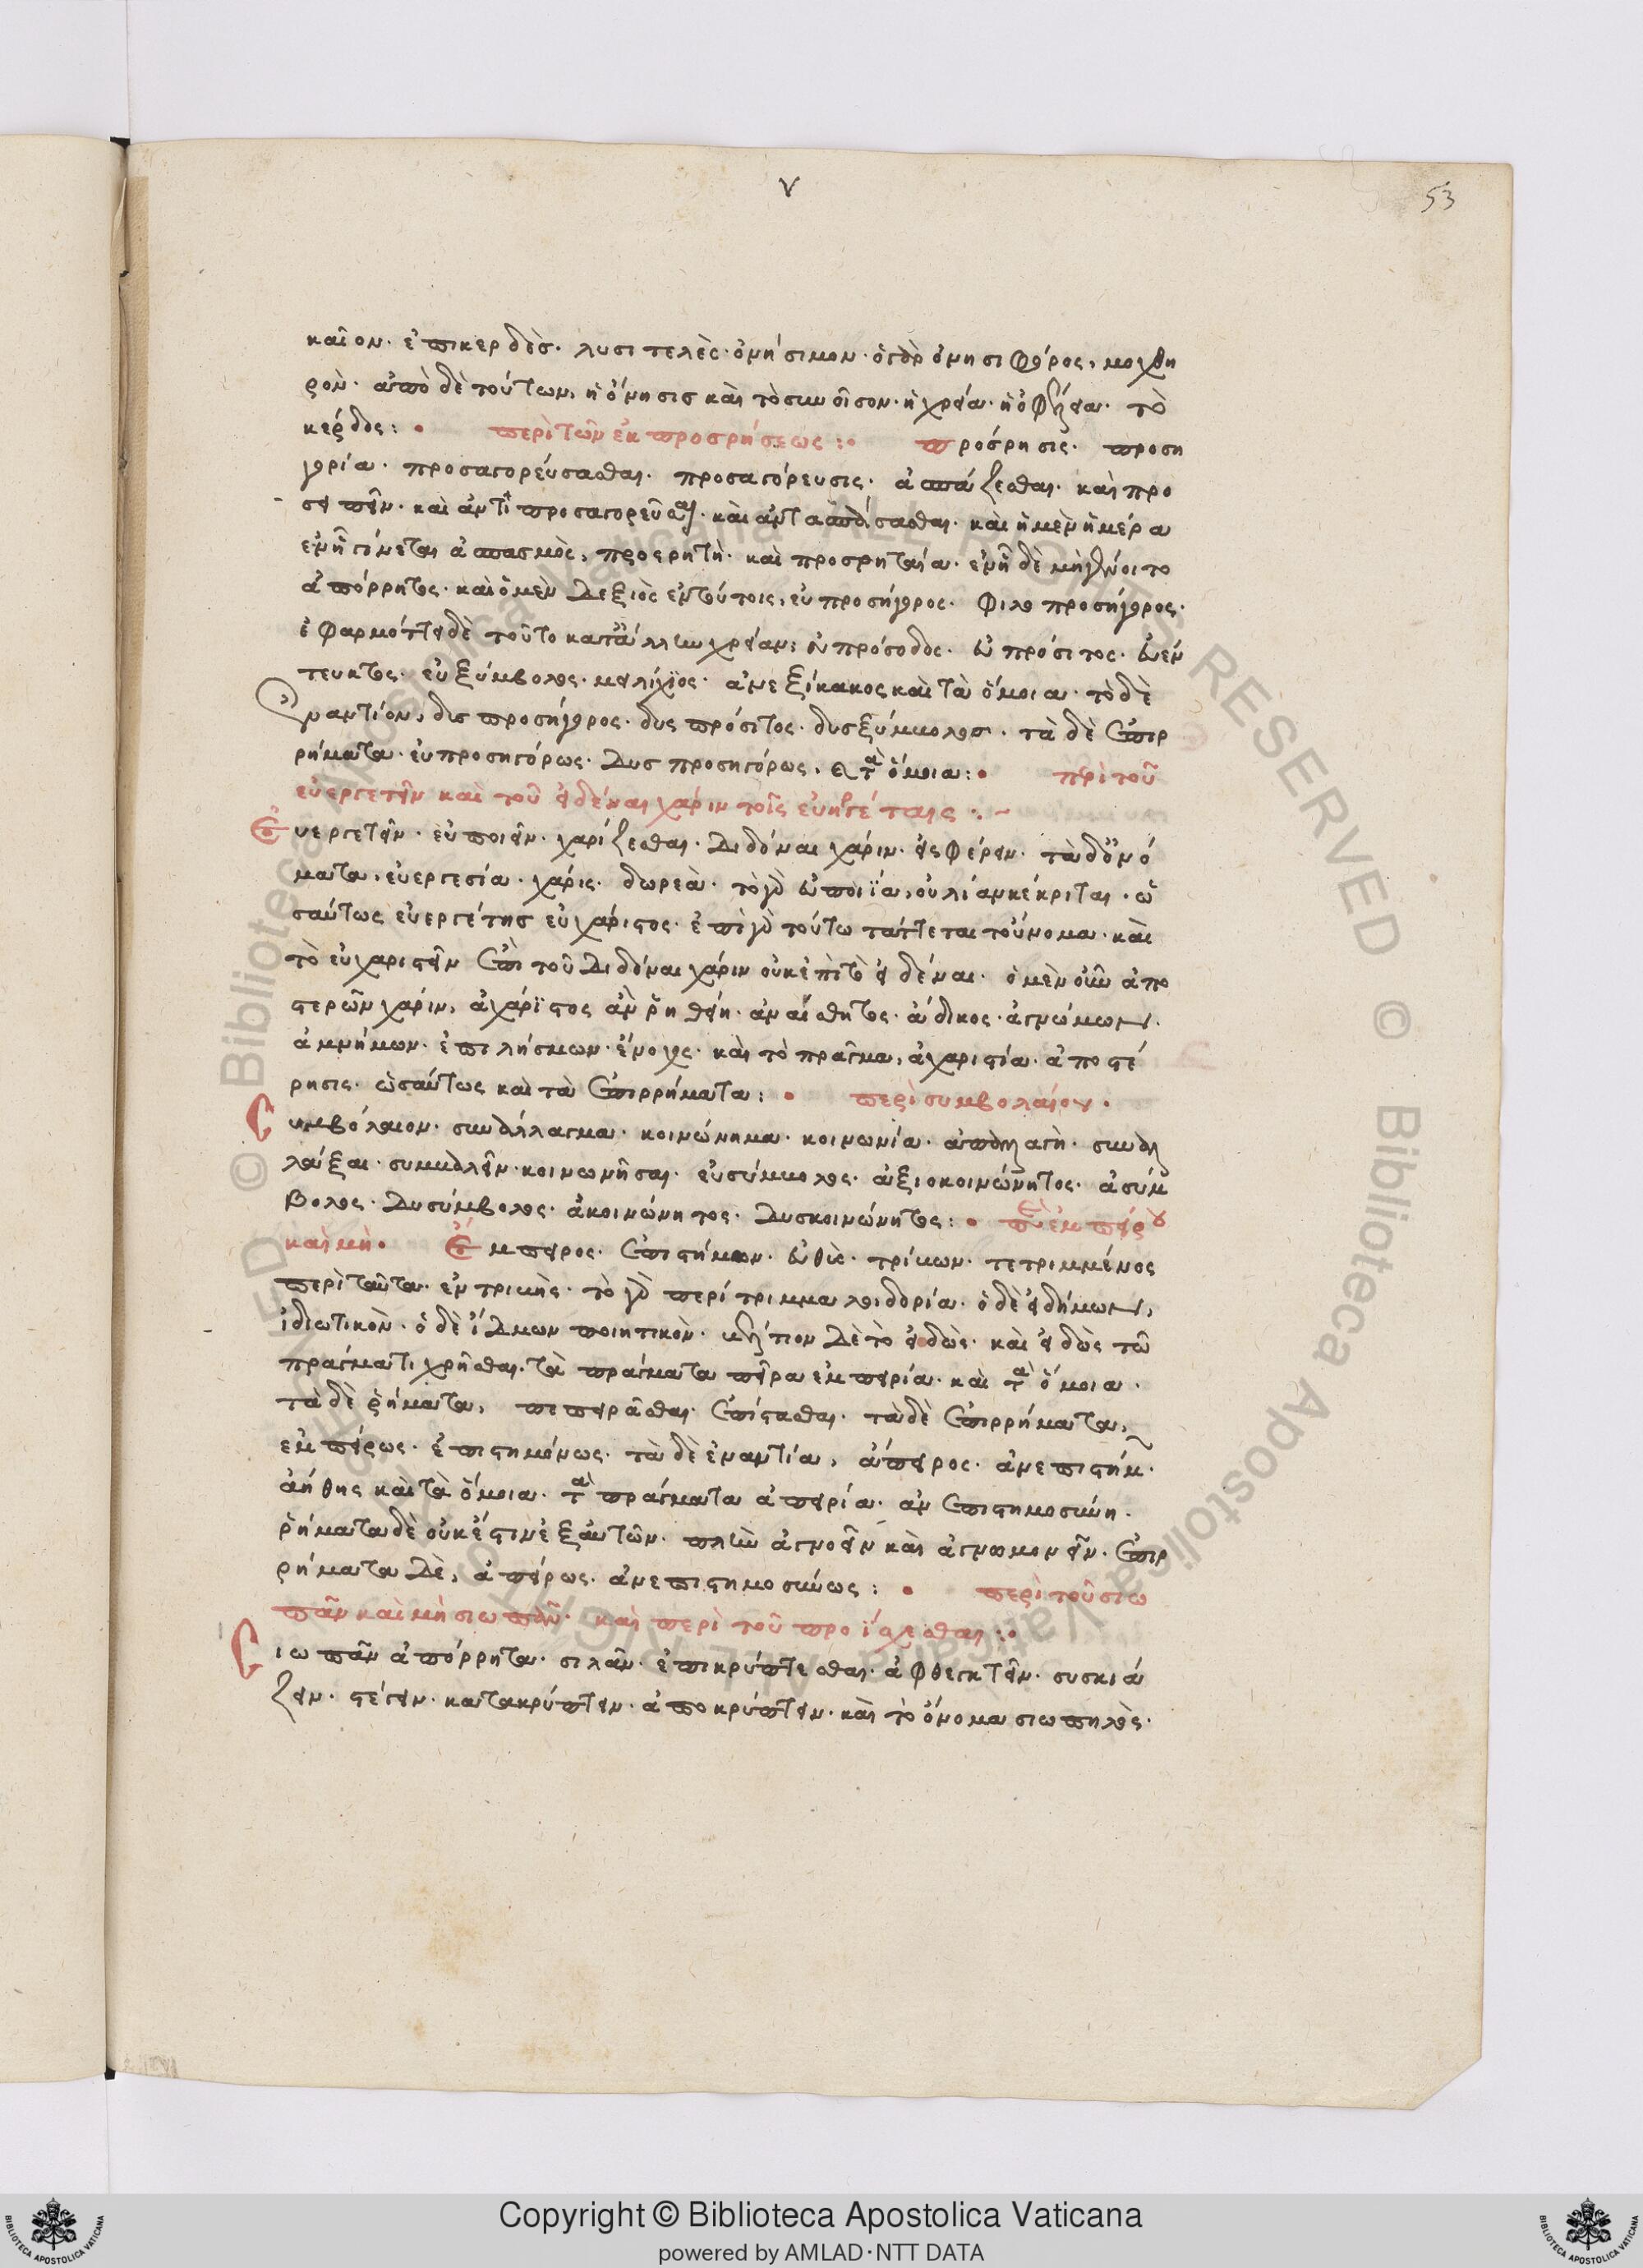 ν
53
καῖον· ἐπικερδὲσ· λυσιτελὲς· ὀνήσιμον· ὁ γὰρ ὀνησιφόρος, μοχθη
ρὸν· ἀπὸ δὲ τούτων, ἡ ὄνησισ καὶ τὸ συνοῖσον· ἡ χρεία· ἡ ὀφέλεια· τὸ
κέρδος:
περὶ τῶν ἐκ προσρήσεως:
πρόσρησις· προση
γορία· προσαγορεύσασθαι· προσαγόρευσις· ἀσπάζεσθαι· καὶ προ
σειπεῖν· καὶ ἀντιπροσαγορεῦσαι· καὶ ἀντασπάσασθαι· καὶ ἡ μὲν ἡμέρα
ἐν ᾗ γίνεται ἀσπασμὸς, προσρητὴ· καὶ προσρηταία· ἐν ᾗ δὲ μὴ γένοιτο
ἀπόρρητος· καὶ ὁ μὲν δεξιὸς ἐν τούτοις, εὐπροσήγορος· φιλοπροσήγορος·
ἐφαρμόττει δὲ τοῦτο κατ' ἄλλην χρείαν: εὐπρόσοδος· εὐπρόσιτος· εὐέν
τευκτος· εὐξύμβολος· μειλίχϊος· ἀνεξίκακος καὶ τὰ ὅμοια· τὸ δὲ
ἐναντίον, δυσπροσήγορος· δυσπρόσιτος· δυσξύμβολοσ· τὰ δὲ ἐπιρ
ρήματα· εὐπροσηγόρως· δυσπροσηγόρως, καὶ τὰ ὅμοια:
περὶ τοῦ
εὐεργετεῖν καὶ τοῦ εἰδέναι χάριν τοῖς εὐεργέταις:~
Εὐεργετεῖν· εὐποιεῖν· χαρίζεσθαι· διδόναι χάριν· εἰσφέρειν· τὰ δ' ὀνό
ματα, εὐεργεσία· χάρις· δωρεὰ· τὸ γὰρ εὐποιΐα, οὐ λίαν κέκριται· ὡ
σαύτως εὐεργέτησ εὐχάριστος· ἐπὶ γὰρ τούτω τάττεται τοὔνομα· καὶ
τὸ εὐχαριστεῖν ἐπὶ τοῦ διδόναι χάριν οὐκ ἐπὶ τὸ εἰδέναι· ὁ μὲν οὖν ἀπο
στερῶν χάριν, ἀχάρϊστος ἂν ῥηθείη· ἀναίσθητος· ἄδικος· ἀγνώμων·
ἀμνήμων· ἐπιλήσμων· ἔνοχος· καὶ τὸ πρᾶγμα, ἀχαριστία· ἀποστέ
ρησις· ὡσαύτως καὶ τὰ ἐπιρρήματα:
περὶ συμβολαίου·
Συμβόλαιον· συνάλλαγμα· κοινώνημα· κοινωνία· ἀπαλλαγὴ· συναλ
λάξαι· συμβαλεῖν· κοινωνῆσαι· εὐσύμβολος· ἀξιοκοινώνητος· ἀσύμ
βολος· δυσύμβολος· ἀκοινώνητος· δυσκοινώνητος:
περὶ ἐμπείρου
καὶ μὴ·
Ἔμπειρος· ἐπιστήμων· εὐθὶς· τρίβων· τετριμμένος
περὶ ταῦτα· ἐντριβὴς· τὸ γὰρ περίτριμμα λοιδορία· ὁ δὲ εἰδήμων,
ἰδιωτικὸν· ὁ δὲ ἴδμων ποιητικὸν· βέλτιον δὲ τὸ εἰδὼς· καὶ εἰδὼς τῶ
πράγματι χρῆσθαι· τὰ πράγματα πεῖρα ἐμπειρία· καὶ τὰ ὅμοια·
τὰ δὲ ῥήματα, πεπειρᾶσθαι· ἐπίστασθαι· τὰ δὲ ἐπιρρήματα,
ἐμπείρως· ἐπιστημόνως· τὰ δὲ ἐναντία, ἄπειρος· ἀνεπιστήμ·
ἀήθης καὶ τὰ ὅμοια· τὰ πράγματα ἀπειρία· ἀνεπιστημοσύνη·
ῥήματα δὲ οὐκ ἔστιν ἐξ αὐτῶν· πλὴν ἀγνοεῖν καὶ ἀγνωμονεῖν· ἐπιρ
ρήματα δὲ, ἀπείρως· ἀνεπιστημοσύνως:
περὶ τοῦ σιω
πᾶν καὶ μὴ σιωπᾶν· καὶ περὶ τοῦ προΐσχεσθαι:
Σιωπᾶν ἀπόρρητα· σιγᾶν· ἐπικρύπτεσθαι· ἀφθεγκτεῖν· συσκιά
ζειν· στέγειν· κατακρύπτειν· ἀποκρύπτειν· καὶ τὸ ὄνομα σιωπηλὸς·
Copyright © Biblioteca Apostolica Vaticana
powered by AMLAD·NTT DATA